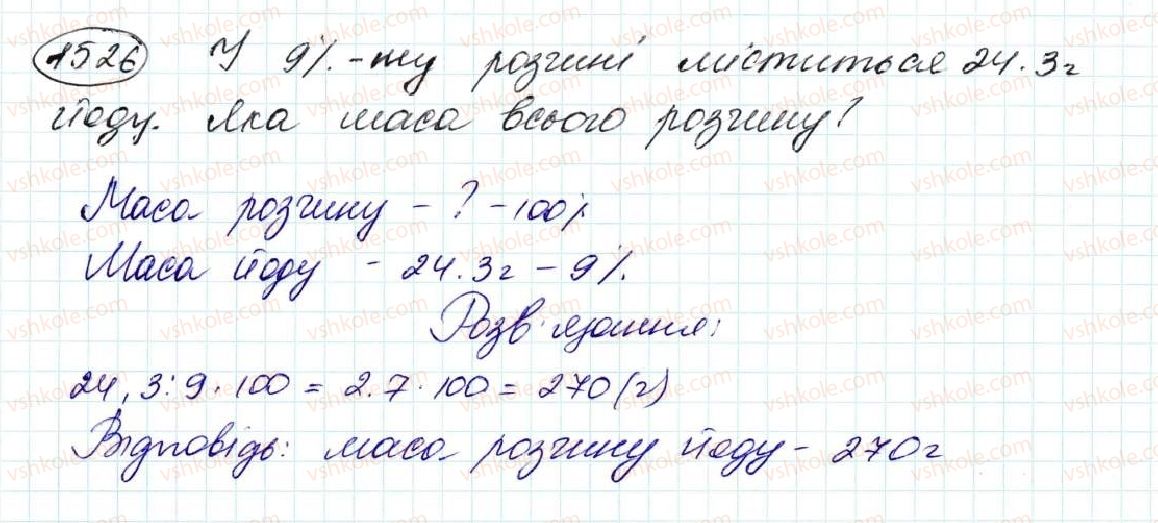 1526 У 9%-му розчині міститься 24.3г
йоду. Яка маса всього розчину?
Маса розчину - ? - 100%
Маса йоду - 24.3г - 9%.
Розв'язання:
24,3:9·100 = 2.7·100 = 270 (г)
Відповідь: маса розчину йоду - 270г